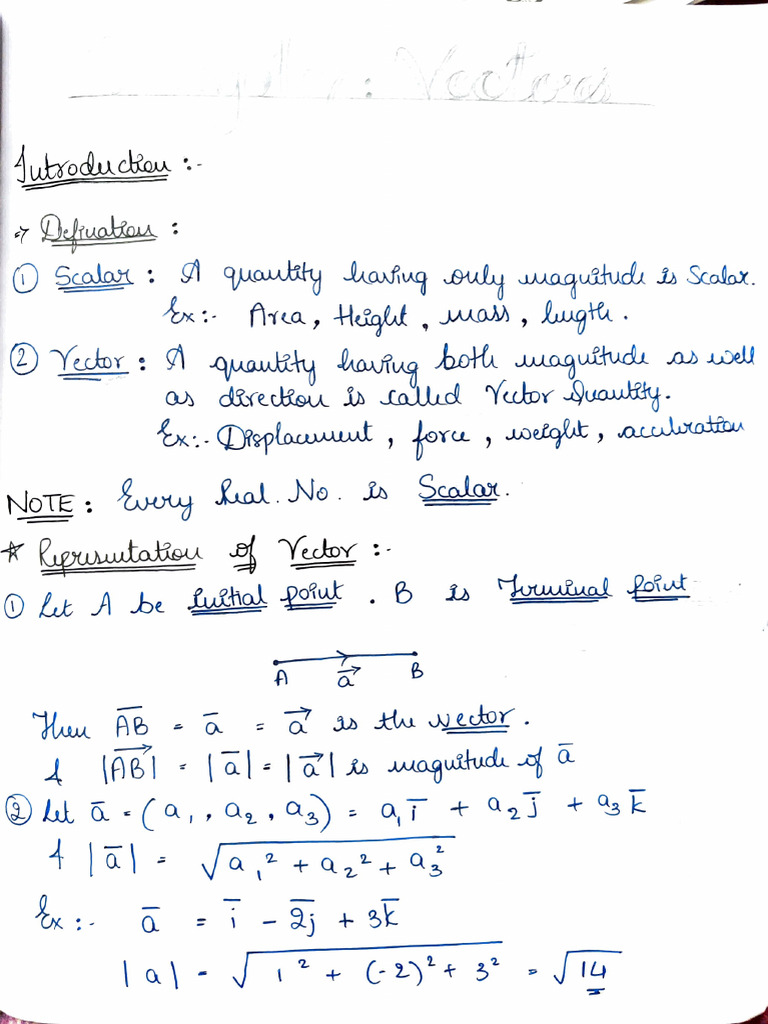 : Vectors
Introduction :-
→ Defination :
① Scalar : A quantity having only magnitude is Scalar.
Ex:- Area, Height, mass, length.
② Vector : A quantity having both magnitude as well
as direction is called Vector Quantity.
Ex:- Displacement, force, weight, accleration
NOTE : Every Real. No. is Scalar.
* Representation of Vector :-
① Let A be Initial point . B is Terminal point
A a⃗ B
Then A̅B̅ = a̅ = a⃗ is the vector.
& |AB⃗| = |a̅| = |a⃗| is magnitude of a̅
② Let a̅ = (a₁, a₂, a₃) = a₁i̅ + a₂j̅ + a₃k̅
& |a̅| = √(a₁² + a₂² + a₃²)
Ex :- a̅ = i̅ - 2̅j̅ + 3k̅
|a| = √(1² + (-2)² + 3²) = √14